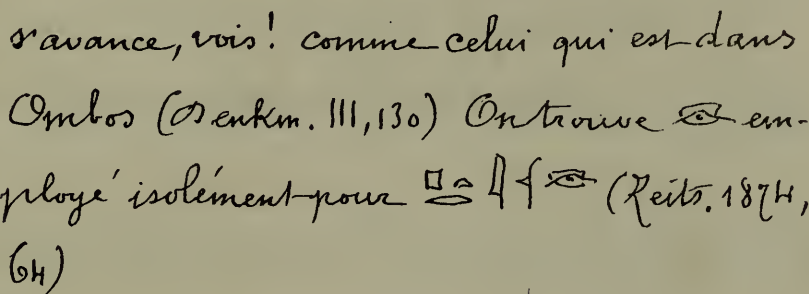 s'avance, vois! comme celui qui est dans
Ombos (Denkm. III, 130) On trouve 𓁹 em-
ployé isolément pour 𓊪𓏏𓂋𓇋 𓁹 (Zeits. 1874,
64)